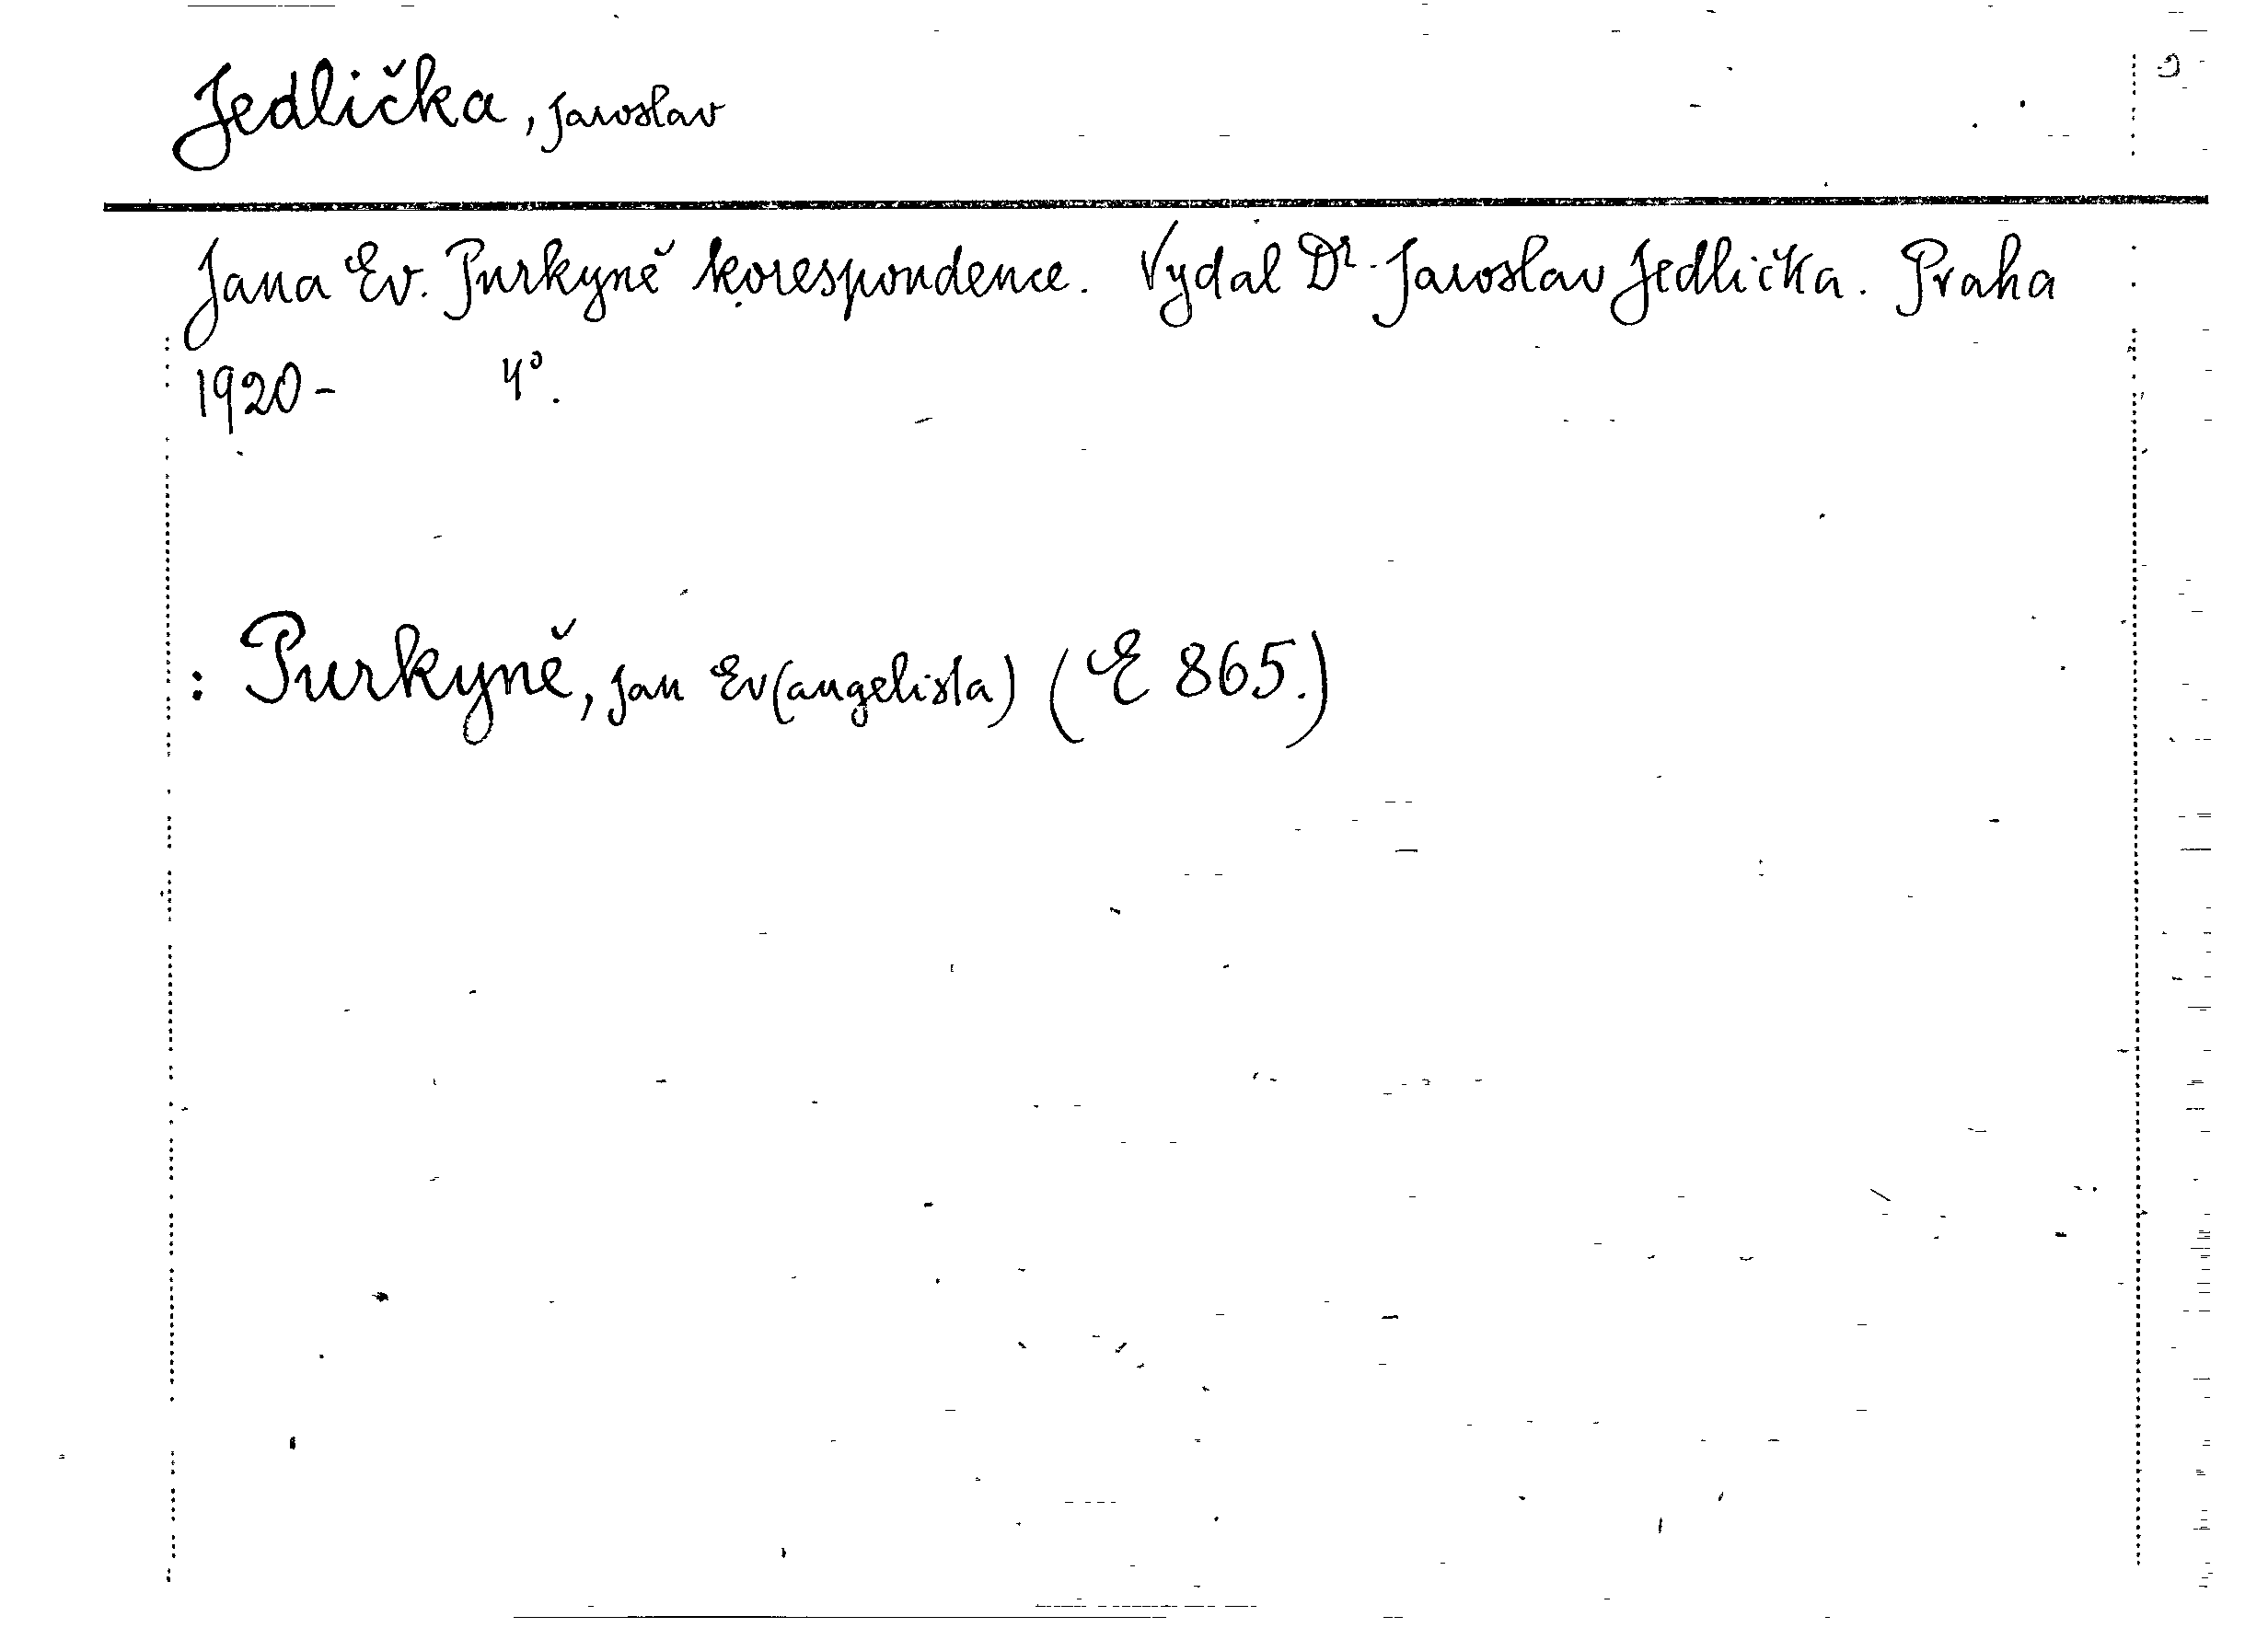 Jedlička, Jaroslav
Jana Ev. Purkyně korespondence. Vydal Dr. Jaroslav Jedlička. Praha
1920- 4°.
: Purkyně, Jan Ev(angelista) (E 865.)